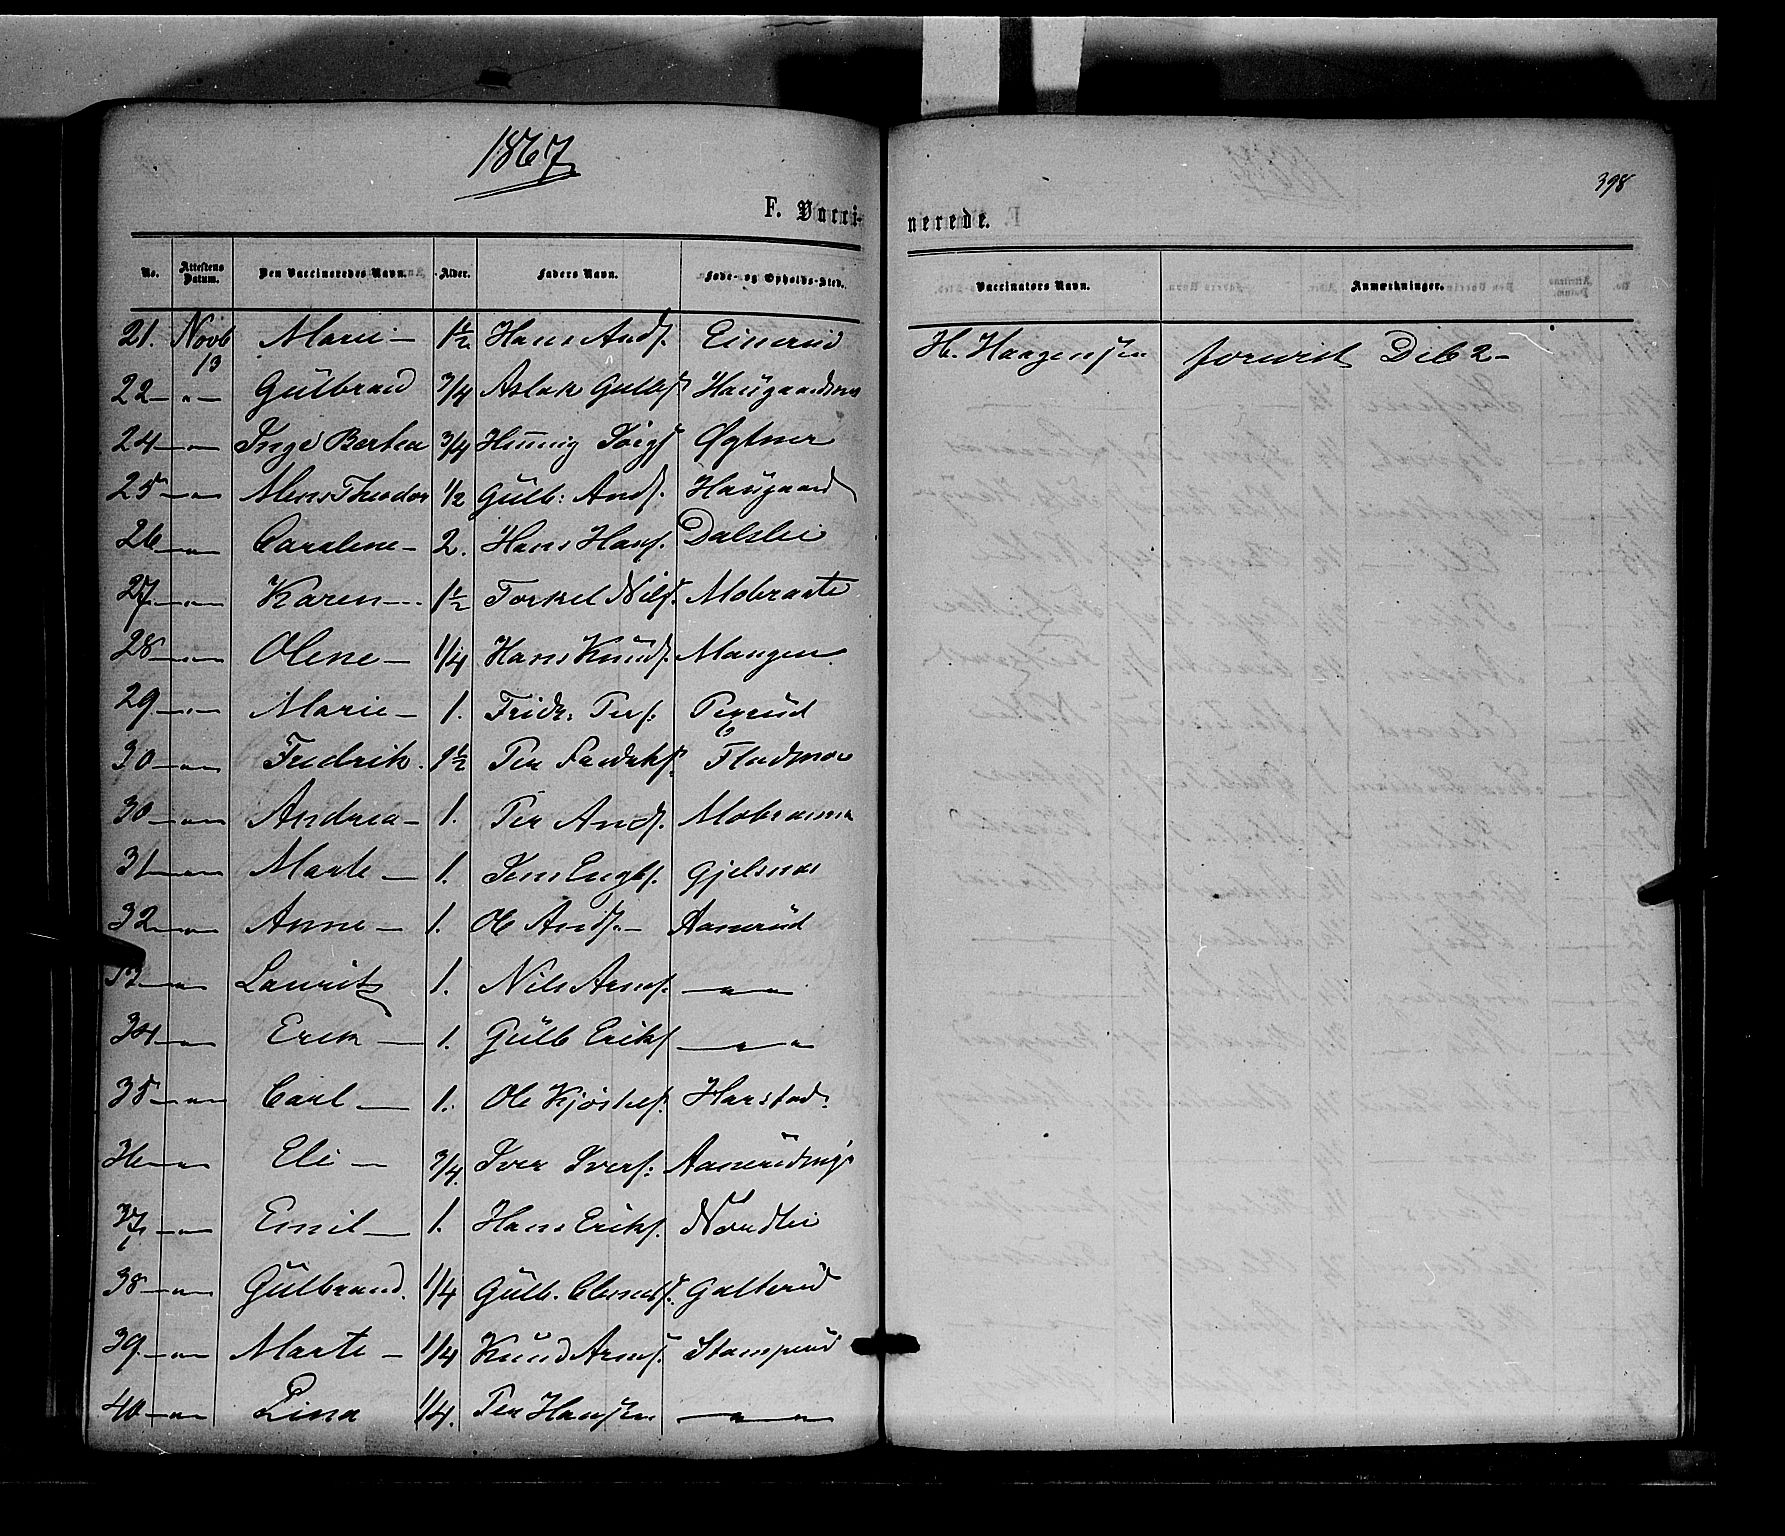 1867
398
F. Vacci-
nerede.
No. Attestens Datum. Den Vaccineredes Navn. Alder. Faders Navn. Føde- og Opholds-Sted. Vaccinators Navn. Anmærkninger.
21. Novb 13 Marie — 1½ Hans Andˢ. Einerud H. Haagensen forevist Deb 2 —
22 — " — Gülbrand 3/4 Aslak Gulbˢ
24 — " — Inge Berthea 3/4 Øgtner
25 — " — Mens Theodor 1/2 Gülb: Andˢ. Haugaard
26 — " — Carelene — 2. Hans Hansˢ. Dalslei
27 — " — Karen — 1½ Torkel Nilsˢ. Mobraate
28 — " — Olene — 1/4 Hans Knudˢ. Mangen
29 — " — Marie — 1. Fridr: Perˢ. Pexrüd
30 — " — Fredrik. 1½ Per Fredrksˢ. Flodmoe
30 — " — Andrea — 1. Per Andˢ.
31 — " — Marte — 1. Jens Engbˢ. Gjelsnæs
32 — " — Anne — 1. Ole Andˢ. — Aanerüd
33 — " — Lauritz 1. Nils Arneˢ. — " —
34 — " — Erik — 1. Gülb Eriksˢ — " —
35 — " — Carl — 1. Ole Kjöstelsˢ. Harstad.
36 — " — Eli — 3/4. Iver Iversˢ. Aanerüdengˢ
37 — " — Emil — 1. Hans Eriksˢ. Nordlei
38 — " — Gülbrand. 1/4 Gülb. Clemetsˢ. Galterüd
39 — " — Marte — 1/4 Knud Arneˢ. Stomperud
40 — " — Lina 1/4. Per Hansen — " —